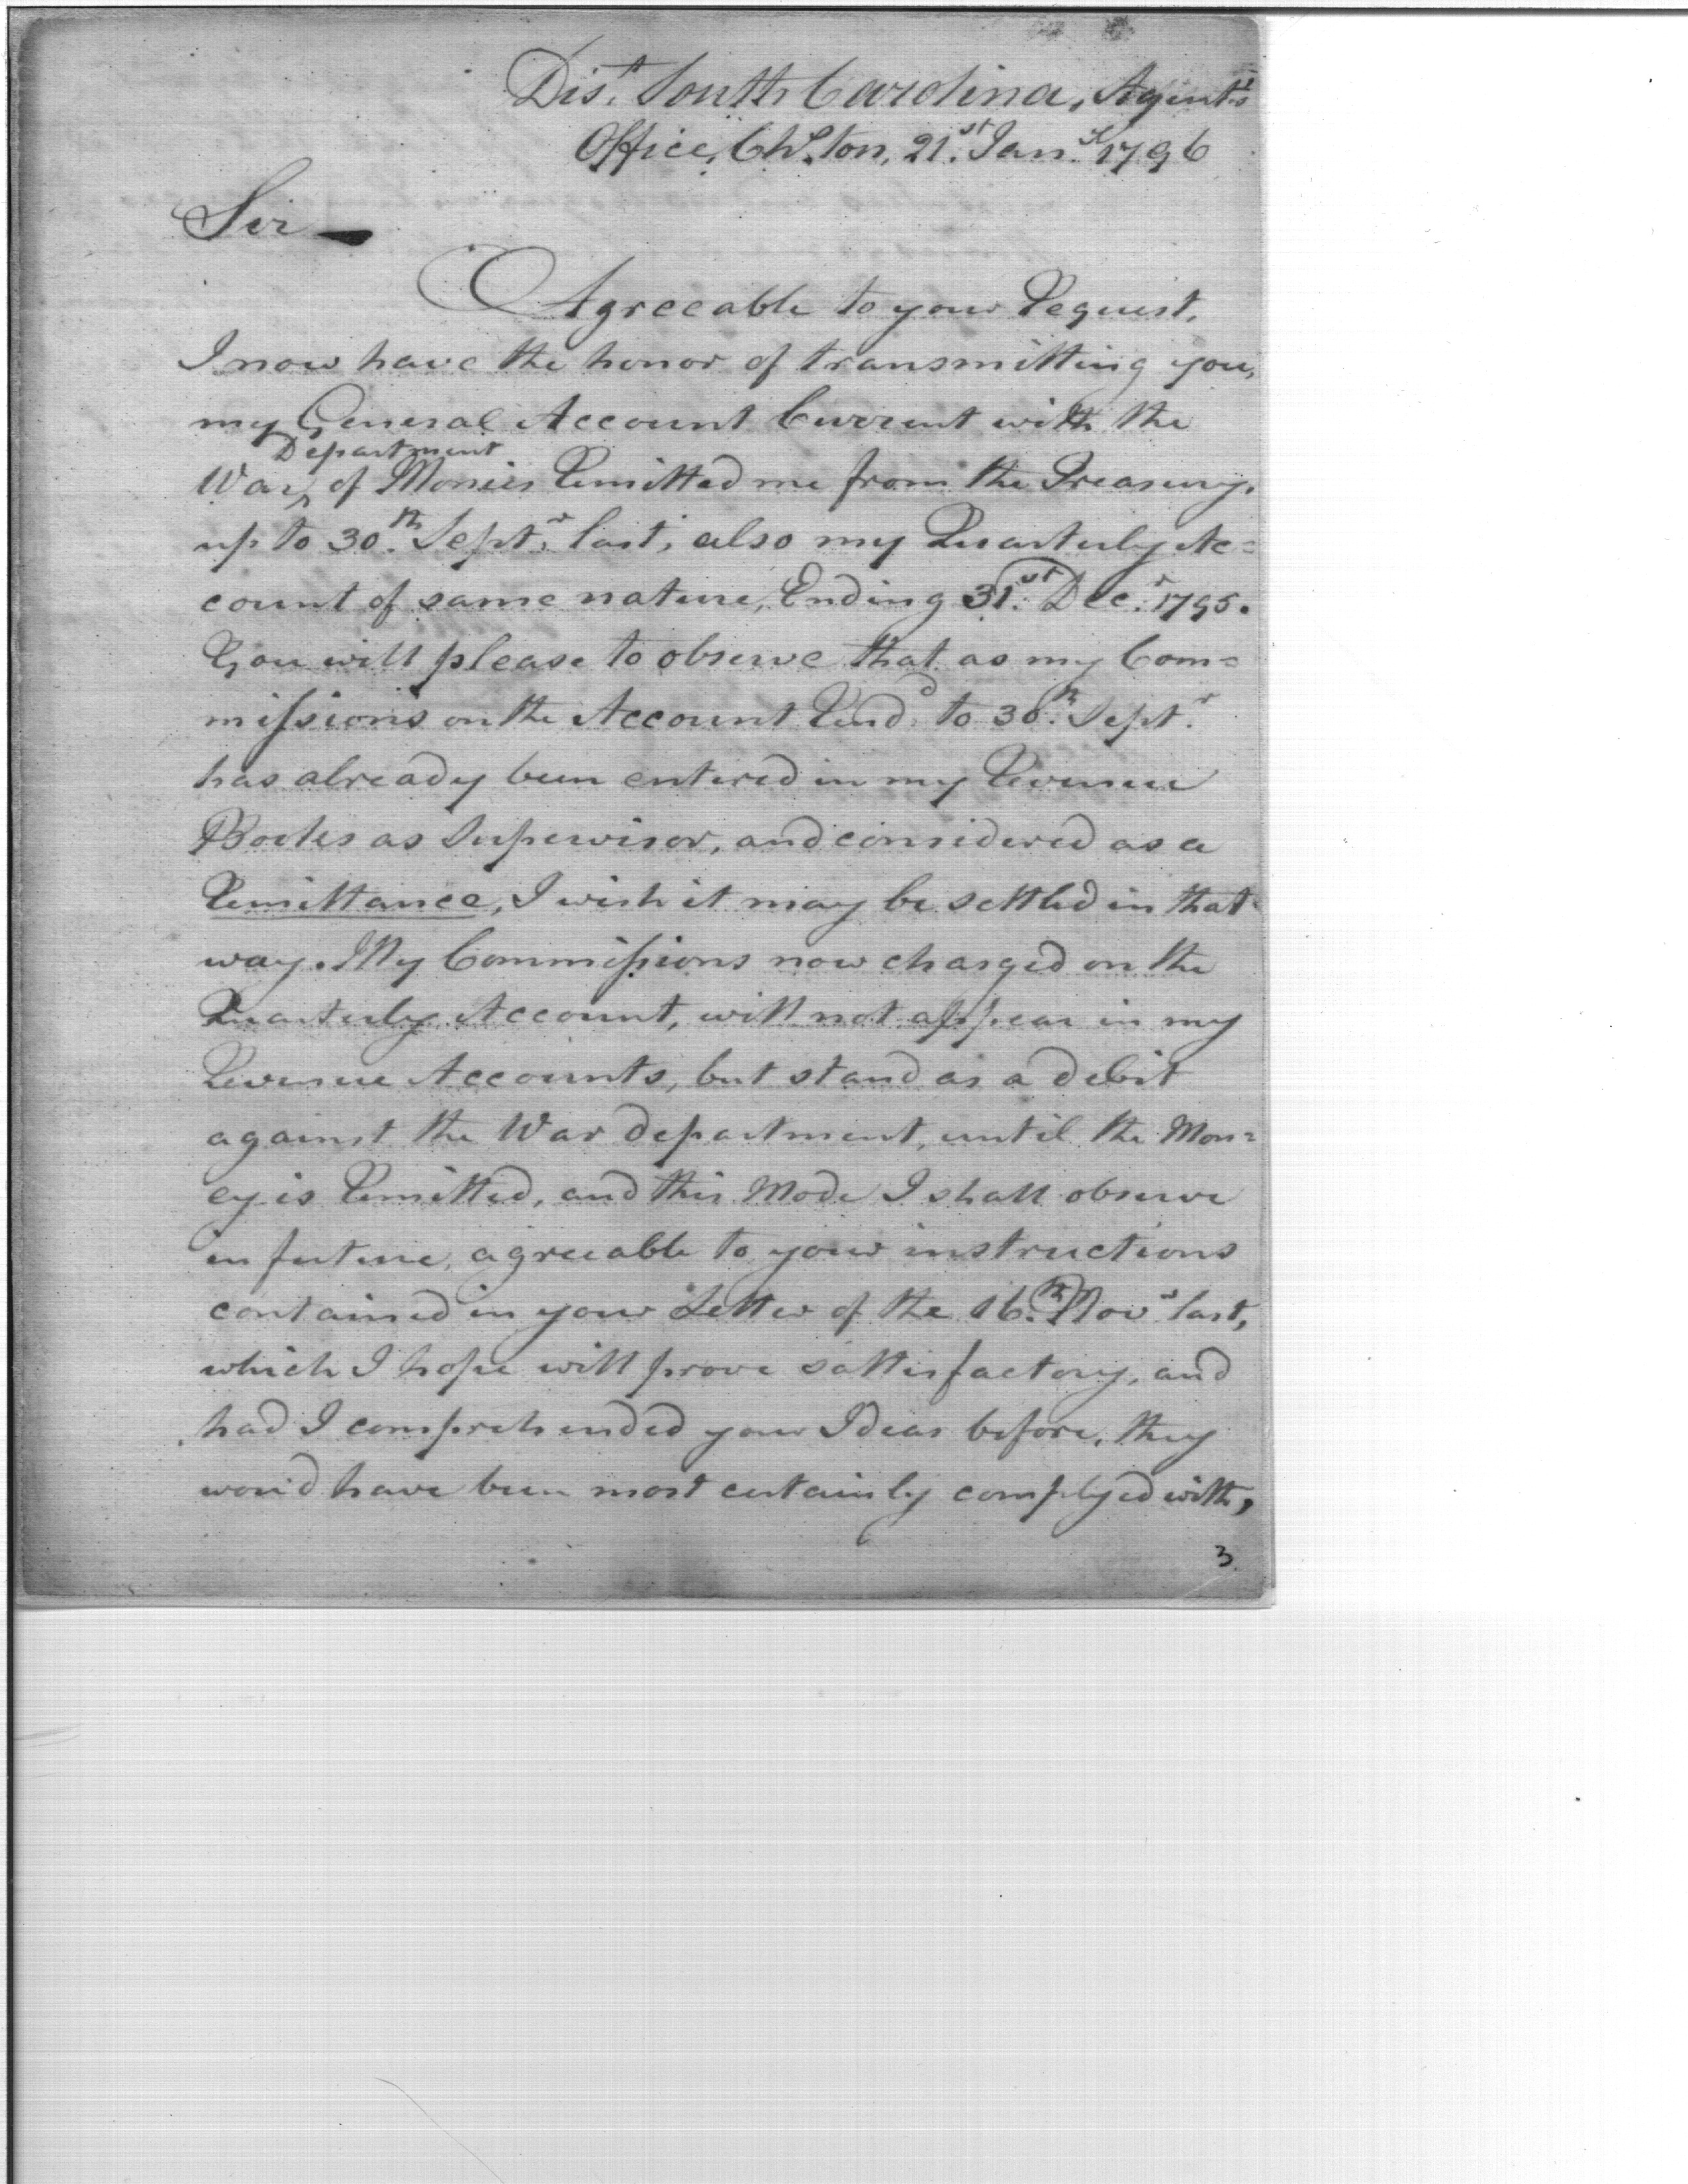 Dis.t South Carolina, Agent's
Office, Ch.s ton, 21.st Jan.y 1796
Sir
Agreeable to your Request,
I now have the honor of transmitting you,
my General Account Current with the
Department
War ‸ of Monies Remitted me from the Treasury,
up to 30.th Sept.r last, also my Quarterly Ac=
count of same nature, Ending 31.st Dec.r 1795.
You will please to observe that as my Com=
missions on the Account Rend.d to 30.th Sept.r
has already been entered in my Revenue
Books as Supervisor, and considered as a
Remittance, I wish it may be settled in that
way. My Commissions now charged on the
Quarterly Account, will not appear in my
Revenue Accounts, but stand as a debit
against the War department, until the Mon=
ey is Remitted, and this Mode I shall observe
in future, agreeable to your instructions
contained in your Letter of the 16.th Nov.r last,
which I hope will prove sattisfactory, and
had I comprehended your Ideas before, they
wou'd have been most certainly complyed with,
3